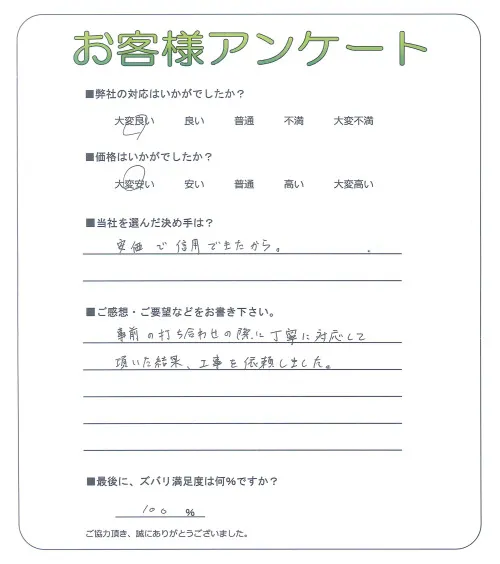 お客様アンケート
■弊社の対応はいかがでしたか？
大変良い 良い 普通 不満 大変不満
■価格はいかがでしたか？
大変安い 安い 普通 高い 大変高い
■当社を選んだ決め手は？
安価で信用できたから。
■ご感想・ご要望などをお書き下さい。
事前の打ち合わせの際に丁寧に対応して
頂いた結果、工事を依頼しました。
■最後に、ズバリ満足度は何%ですか？
100 %
ご協力頂き、誠にありがとうございました。